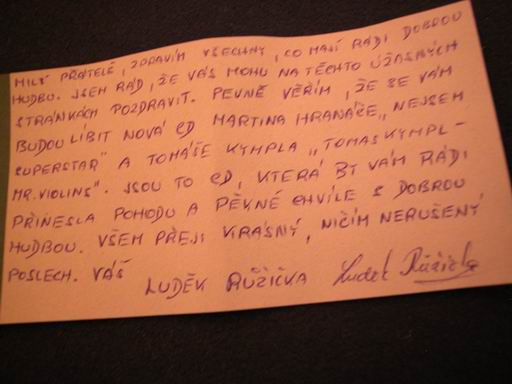 MILÍ PŘÁTELÉ, ZDRAVÍM VŠECHNY, CO MAJÍ RÁDI DOBROU
HUDBU. JSEM RÁD, ŽE VÁS MOHU NA TĚCHTO ÚŽASNÝCH
STRÁNKÁCH POZDRAVIT. PEVNĚ VĚŘÍM, ŽE SE VÁM
BUDOU LÍBIT NOVÁ CD MARTINA HRANÁČE „NEJSEM
SUPERSTAR" A TOMÁŠE KYMPLA „TOMAS KYMPL -
MR. VIOLINS". JSOU TO CD, KTERÁ BY VÁM RÁDI
PŘINESLA POHODU A PĚKNÉ CHVÍLE S DOBROU
HUDBOU. VŠEM PŘEJI KRÁSNÝ, NIČÍM NERUŠENÝ
POSLECH. VÁŠ LUDĚK RŮŽIČKA Luděk Růžička